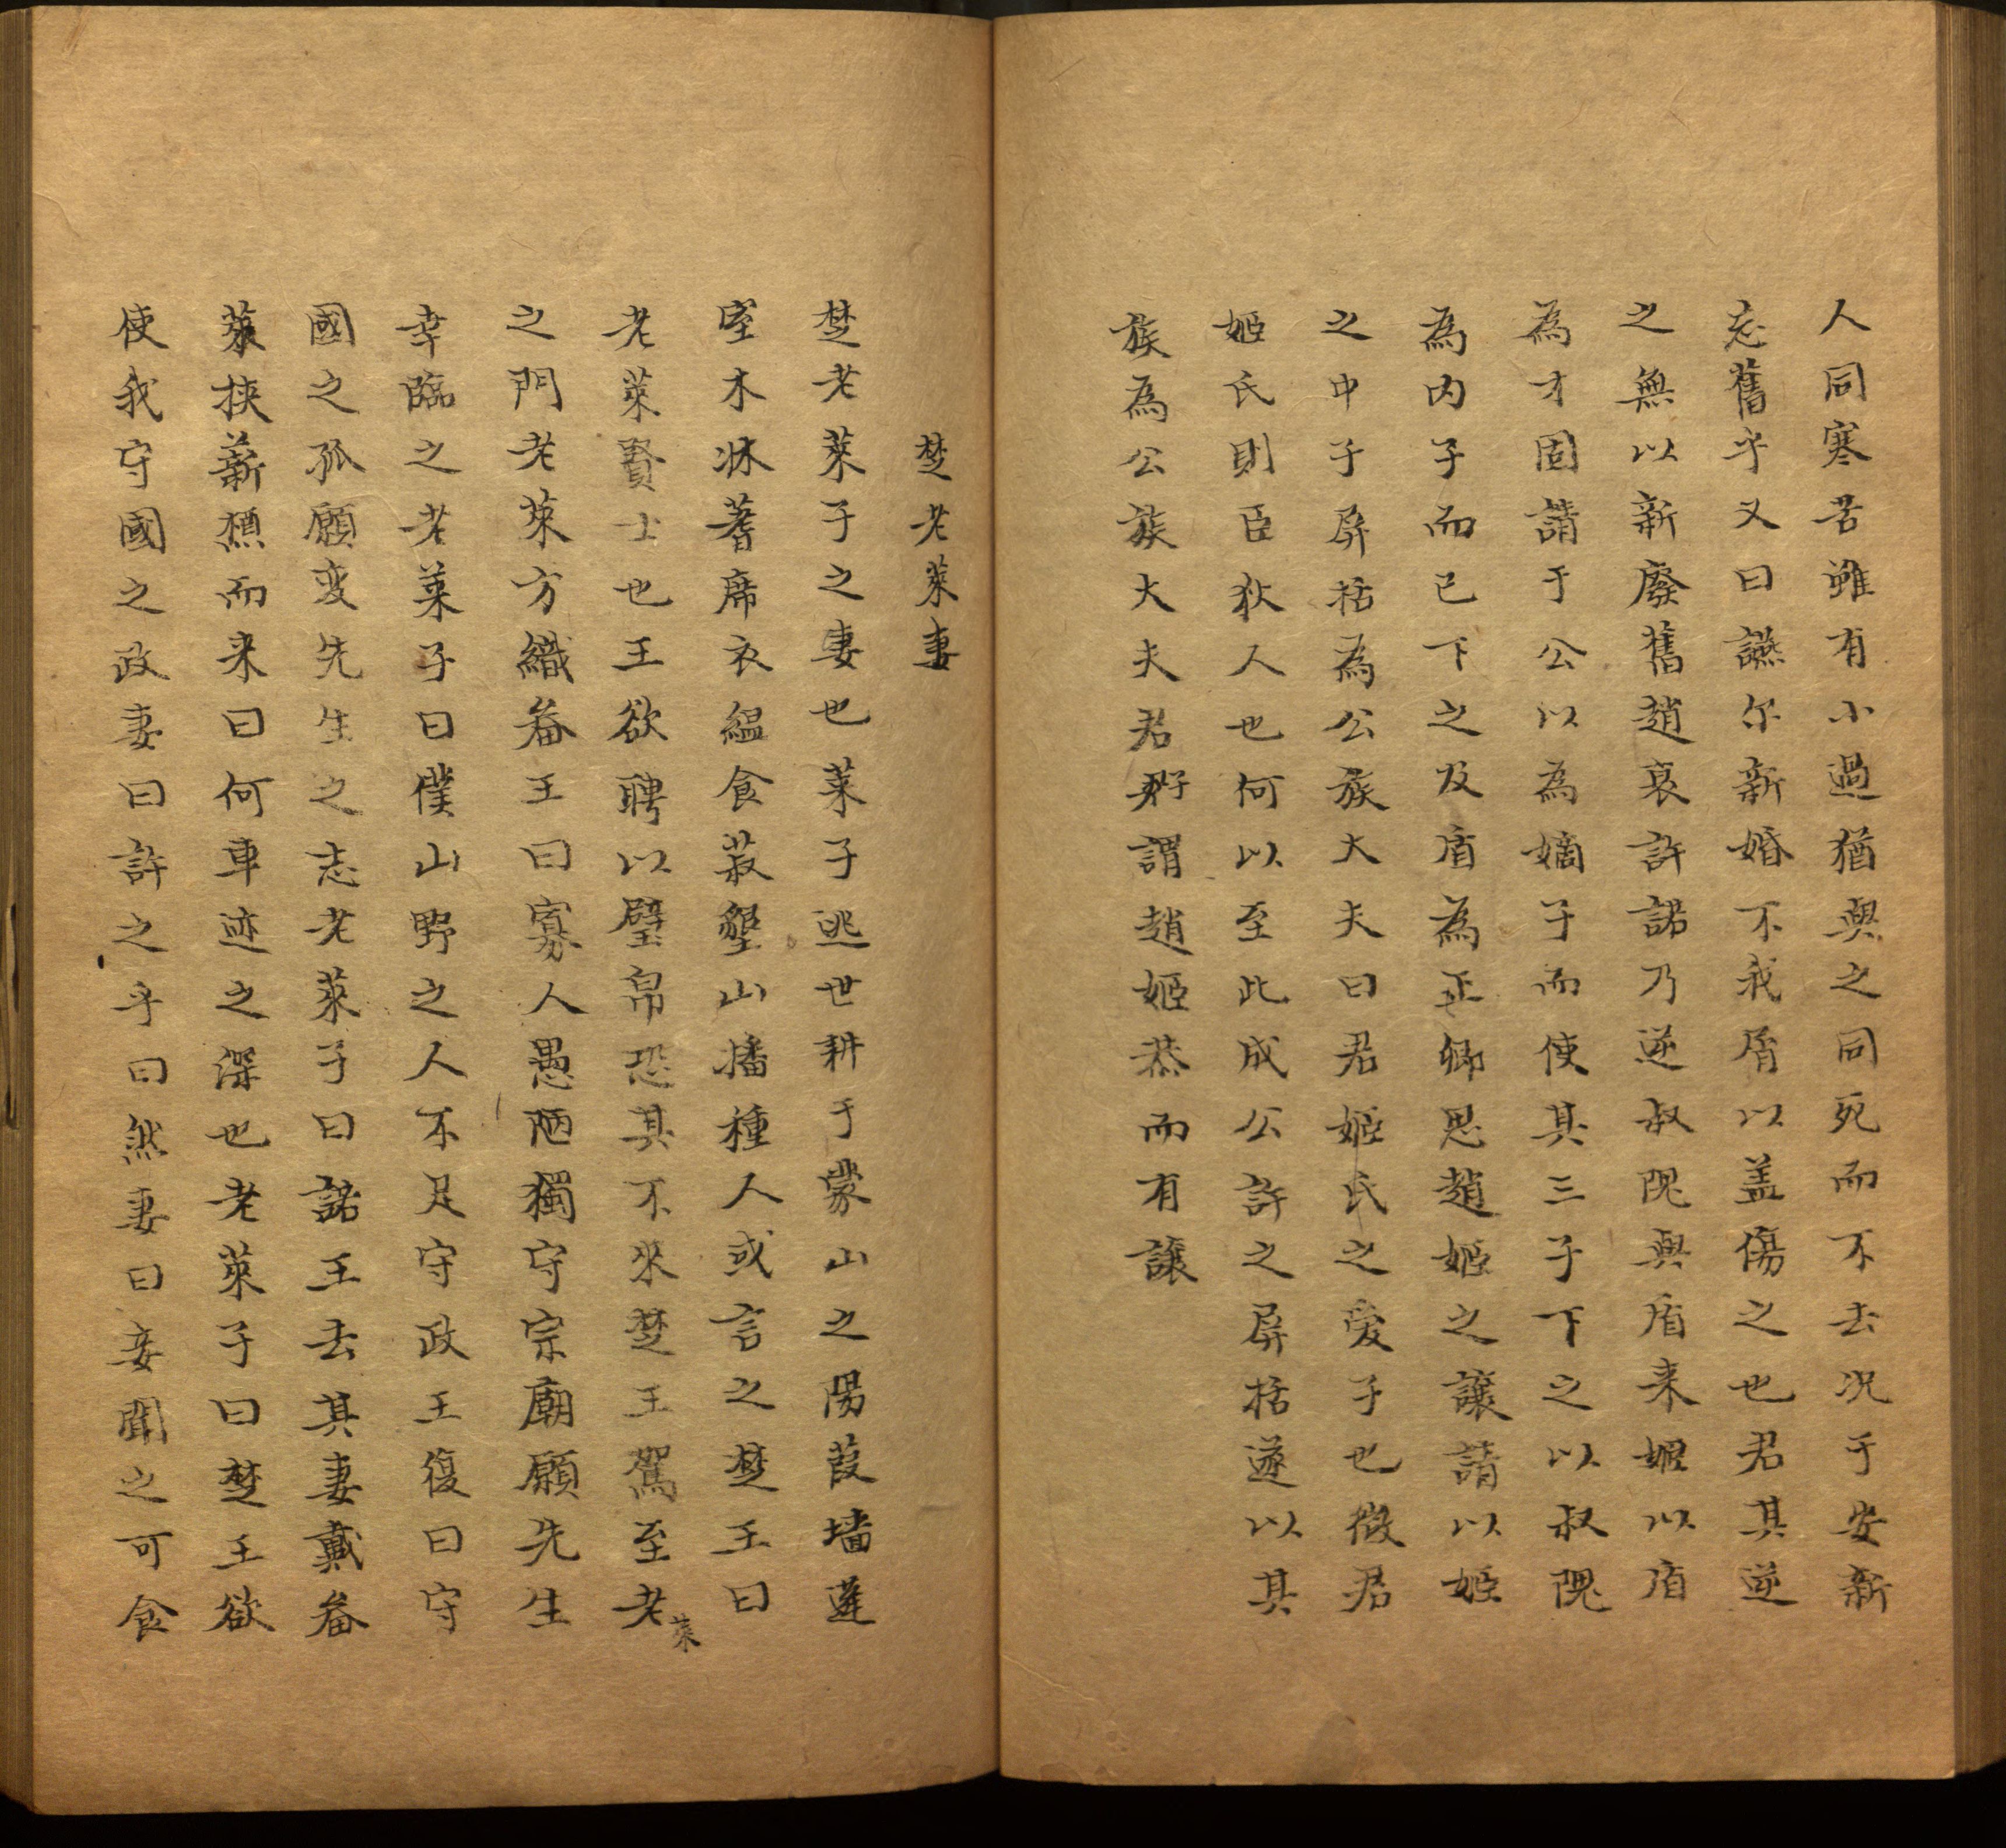 人同寒苦雖有小過猶與之同死而不去况于安新
忘舊乎又曰讌尔新婚不我屑以盖傷之也君其逆
之無以新廢舊趙衰許諾乃逆叔隗與盾来姬以盾
為才固請于公以為嫡子而使其三子下之以叔隗
為内子而已下之及盾為正卿思趙姬之讓請以姬
之中子屏括為公族大夫曰君姬氏之愛子也微君
姬氏則臣狄人也何以至此成公許之屏括遂以其
族為公族大夫君子謂趙姬恭而有讓
楚老萊妻
楚老萊子之妻也萊子逃世耕于蒙山之陽葭墻蓬
室木牀蓍席衣緼食菽墾山播種人或言之楚王曰
老萊賢士也王欲聘以璧帛恐其不來楚王駕至老萊
之門老萊方織畚王曰寡人愚陋獨守宗廟願先生
幸臨之老萊子曰僕山野之人不足守政王復曰守
國之孤願变先生之志老萊子曰諾王去其妻戴畚
萊挾薪樵而来曰何車迹之深也老萊子曰楚王欲
使我守國之政妻曰許之乎曰然妻曰妾聞之可食